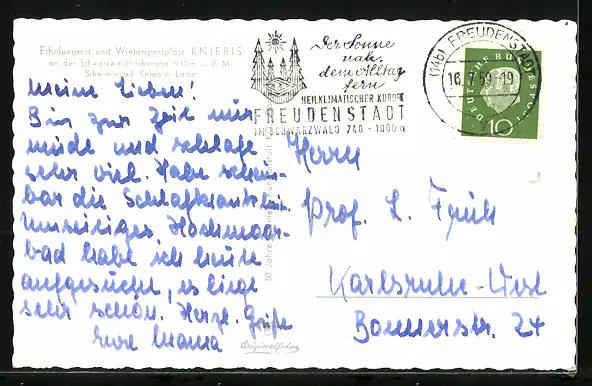 Erholungsort und Wintersportplatz KNIEBIS
an der Schwarzwaldhochstraße 930 m ü. d. M.
Schwimmbad Kniebis-Lamm
Meine Lieben!
Bin zur Zeit nur
müde und schlafe
sehr viel. Habe schein-
bar die Schlafkrankheit.
Hochmoor-
bad habe ich heute
aufgesucht, es liegt
sehr schön. Herzl. Grüße
Eure Mama
Der Sonne
nah,
dem Alltag
fern
HEILKLIMATISCHER KURORT
FREUDENSTADT
IM SCHWARZWALD 740 - 1000 m
(14b) FREUDENSTADT
16.7.59-19
DEUTSCHE BUNDESPOST
10
Herrn
Prof. L.
Karlsruhe-West
24
50 Jahre
Original